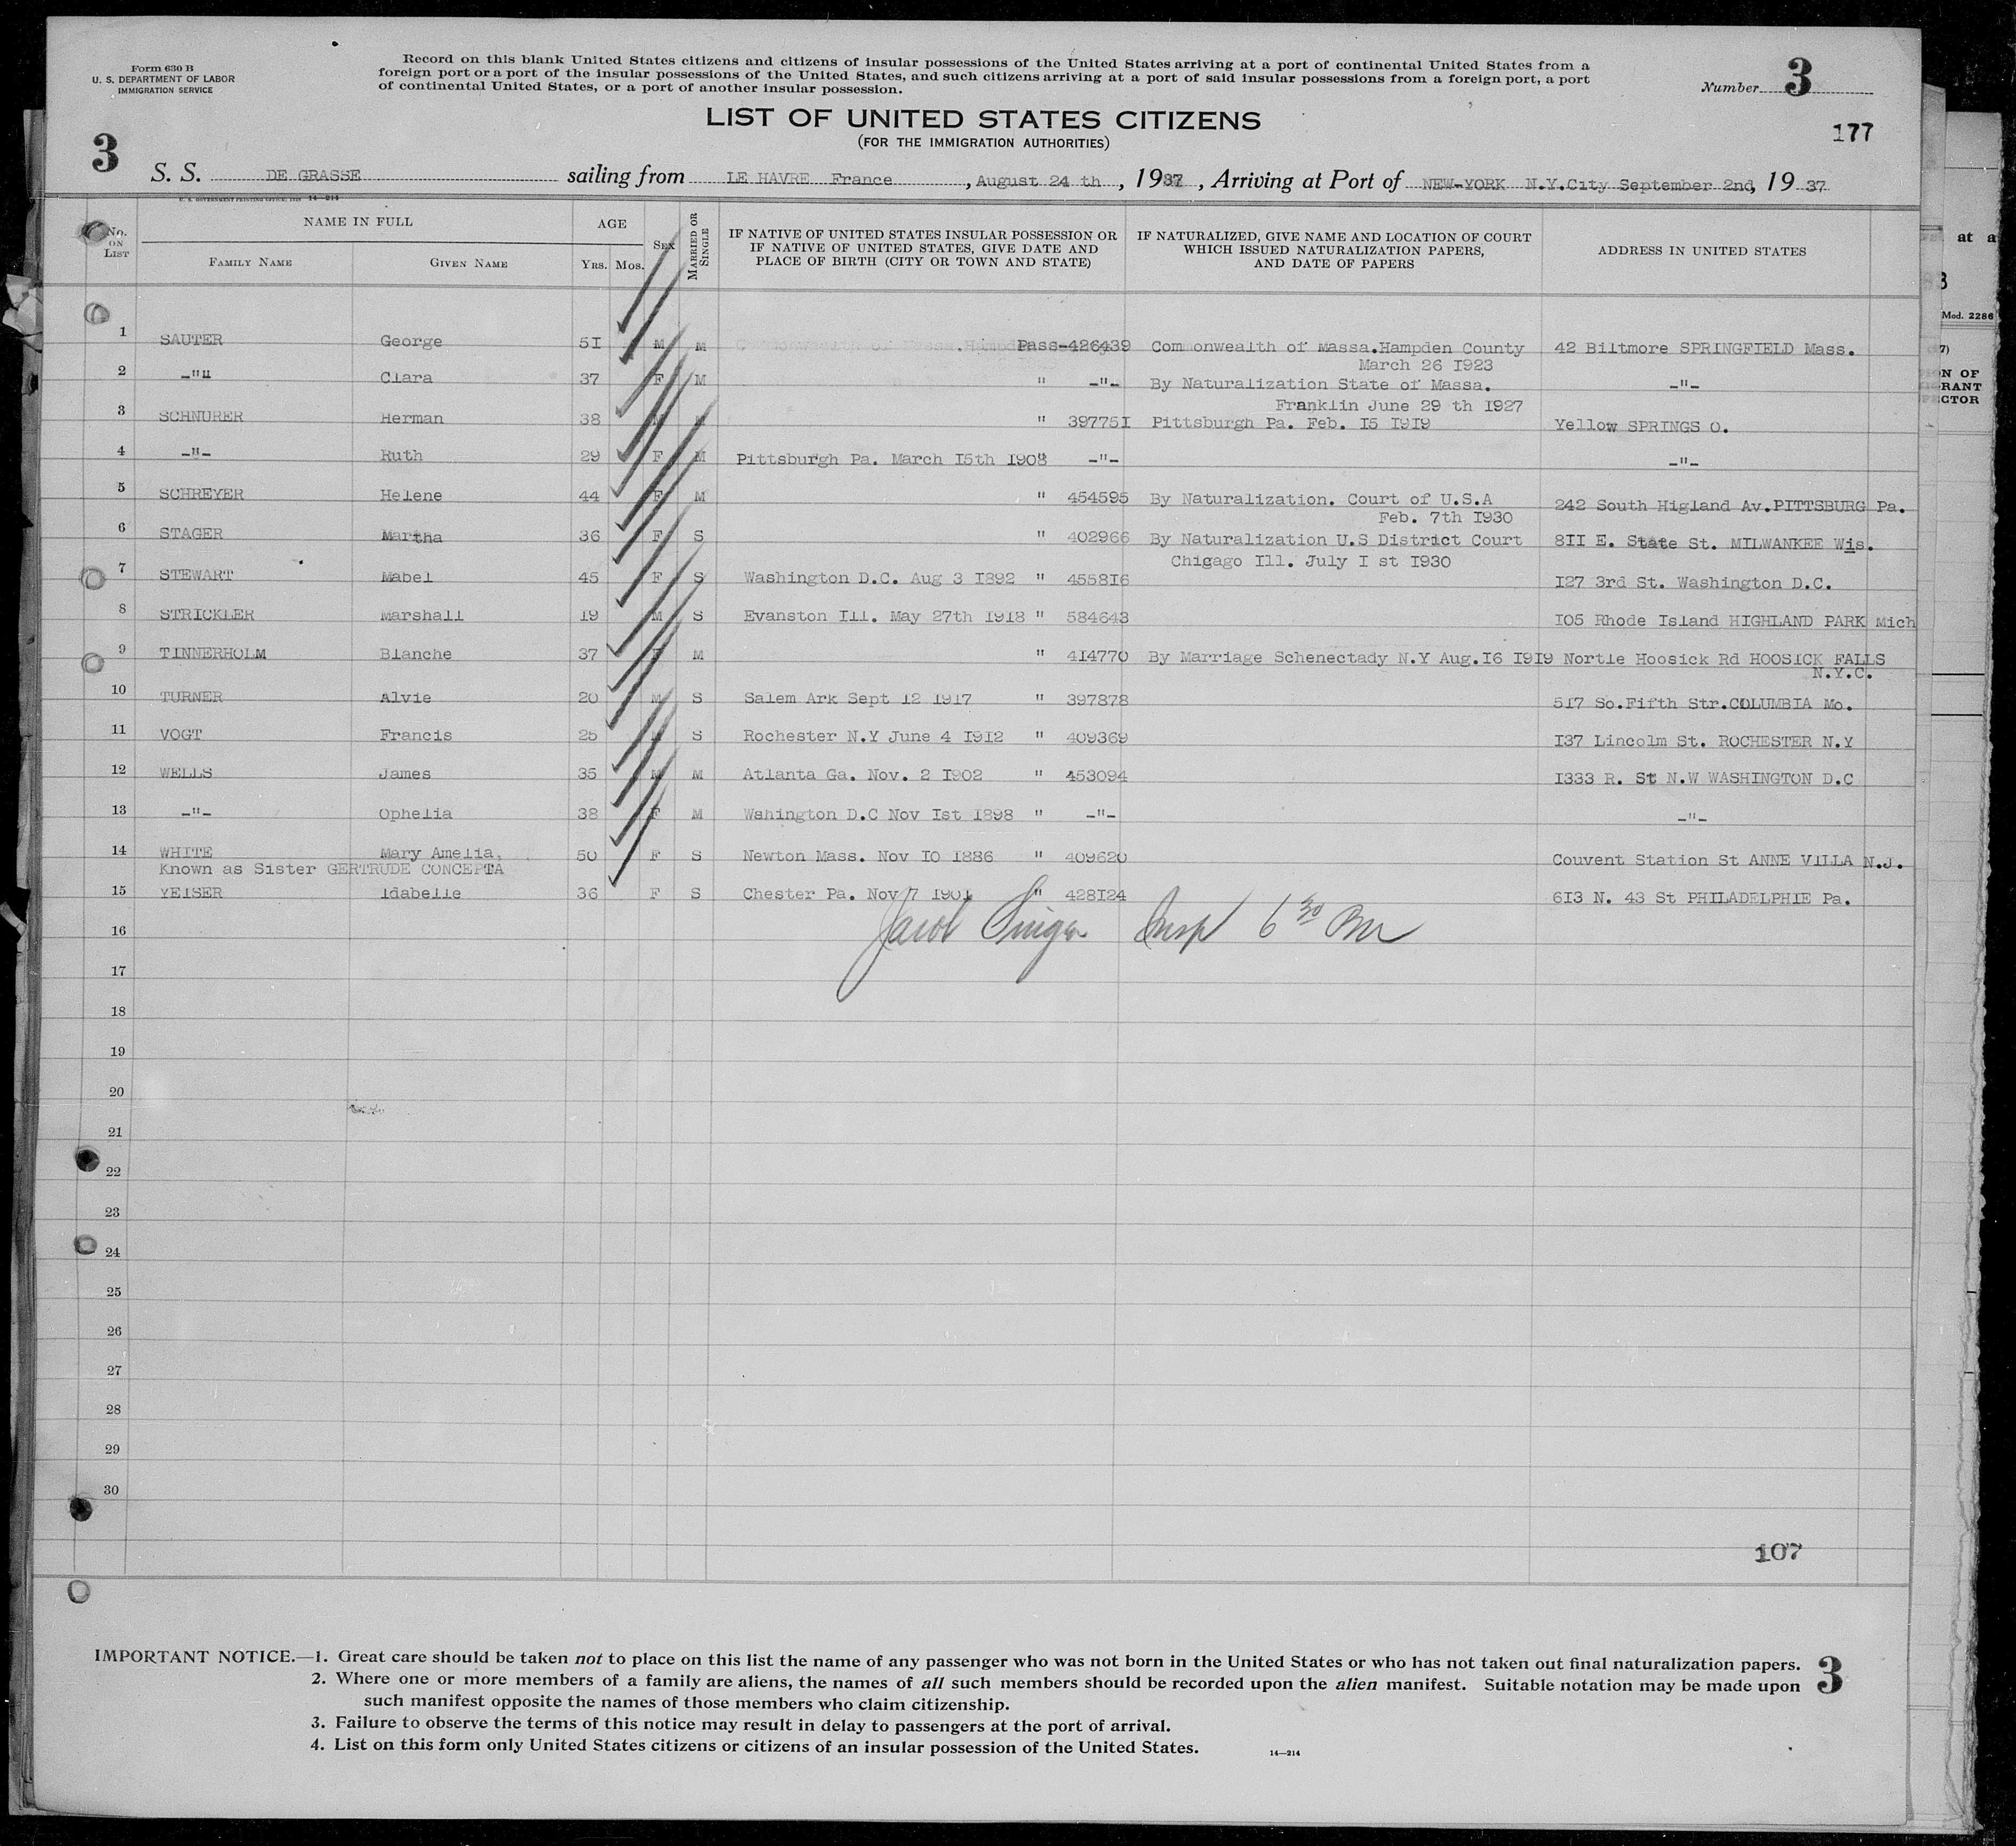 Form 630 B
U. S. DEPARTMENT OF LABOR
IMMIGRATION SERVICE
Record on this blank United States citizens and citizens of insular possessions of the United States arriving at a port of continental United States from a
foreign port or a port of the insular possessions of the United States, and such citizens arriving at a port of said insular possessions from a foreign port, a port
of continental United States, or a port of another insular possession.
Number 3
177
LIST OF UNITED STATES CITIZENS
(FOR THE IMMIGRATION AUTHORITIES)
3
S. S. DE GRASSE sailing from LE HAVRE France, August 24 th, 1937, Arriving at Port of NEW-YORK N.Y.City September 2nd, 19 37
14—214
No. ON LIST NAME IN FULL FAMILY NAME GIVEN NAME AGE YRS. MOS. SEX MARRIED OR SINGLE
IF NATIVE OF UNITED STATES INSULAR POSSESSION OR
IF NATIVE OF UNITED STATES, GIVE DATE AND
PLACE OF BIRTH (CITY OR TOWN AND STATE)
IF NATURALIZED, GIVE NAME AND LOCATION OF COURT
WHICH ISSUED NATURALIZATION PAPERS,
AND DATE OF PAPERS
ADDRESS IN UNITED STATES
1 SAUTER George 5I M M Pass-426439 Commonwealth of Massa.Hampden County 42 Biltmore SPRINGFIELD Mass.
March 26 I923
2 -"" Clara 37 F M " -"- By Naturalization State of Massa. -"-
Franklin June 29 th I927
3 SCHNURER Herman 38 M M " 39775I Pittsburgh Pa. Feb. I5 I9I9 Yellow SPRINGS O.
4 -"- Ruth 29 F M Pittsburgh Pa. March I5th I908 " -"- -"-
5 SCHREYER Helene 44 F M " 454595 By Naturalization. Court of U.S.A 242 South Higland Av.PITTSBURG Pa.
Feb. 7th I930
6 STAGER Martha 36 F S " 402966 By Naturalization U.S District Court 8II E. State St. MILWANKEE Wis.
Chigago Ill. July I st I930
7 STEWART Mabel 45 F S Washington D.C. Aug 3 I892 " 4558I6 I27 3rd St. Washington D.C.
8 STRICKLER Marshall I9 M S Evanston Ill. May 27th I9I8 " 584643 I05 Rhode Island HIGHLAND PARK Mich
9 TINNERHOLM Blanche 37 F M " 4I4770 By Marriage Schenectady N.Y Aug.I6 I9I9 Nortle Hoosick Rd HOOSICK FALLS
N.Y.C.
10 TURNER Alvie 20 M S Salem Ark Sept I2 I9I7 " 397878 5I7 So.Fifth Str.COLUMBIA Mo.
11 VOGT Francis 25 S Rochester N.Y June 4 I9I2 " 409369 I37 Lincolm St. ROCHESTER N.Y
12 WELLS James 35 M M Atlanta Ga. Nov. 2 I902 " 453094 I333 R. St N.W WASHINGTON D.C
13 -"- Ophelia 38 F M Wahington D.C Nov Ist I898 " -"- -"-
14 WHITE Mary Amelia, 50 F S Newton Mass. Nov I0 I886 " 409620 Couvent Station St ANNE VILLA N.J.
Known as Sister GERTRUDE CONCEPTA
15 YEISER Idabelle 36 F S Chester Pa. Nov 7 I90I " 428I24 6I3 N. 43 St PHILADELPHIE Pa.
Jacob Singer Insp 6 30 PM
16
17
18
19
20
21
22
23
24
25
26
27
28
29
30
107
IMPORTANT NOTICE.—1. Great care should be taken not to place on this list the name of any passenger who was not born in the United States or who has not taken out final naturalization papers.
2. Where one or more members of a family are aliens, the names of all such members should be recorded upon the alien manifest. Suitable notation may be made upon
such manifest opposite the names of those members who claim citizenship.
3. Failure to observe the terms of this notice may result in delay to passengers at the port of arrival.
4. List on this form only United States citizens or citizens of an insular possession of the United States.
14—214
3
at a
Mod. 2286